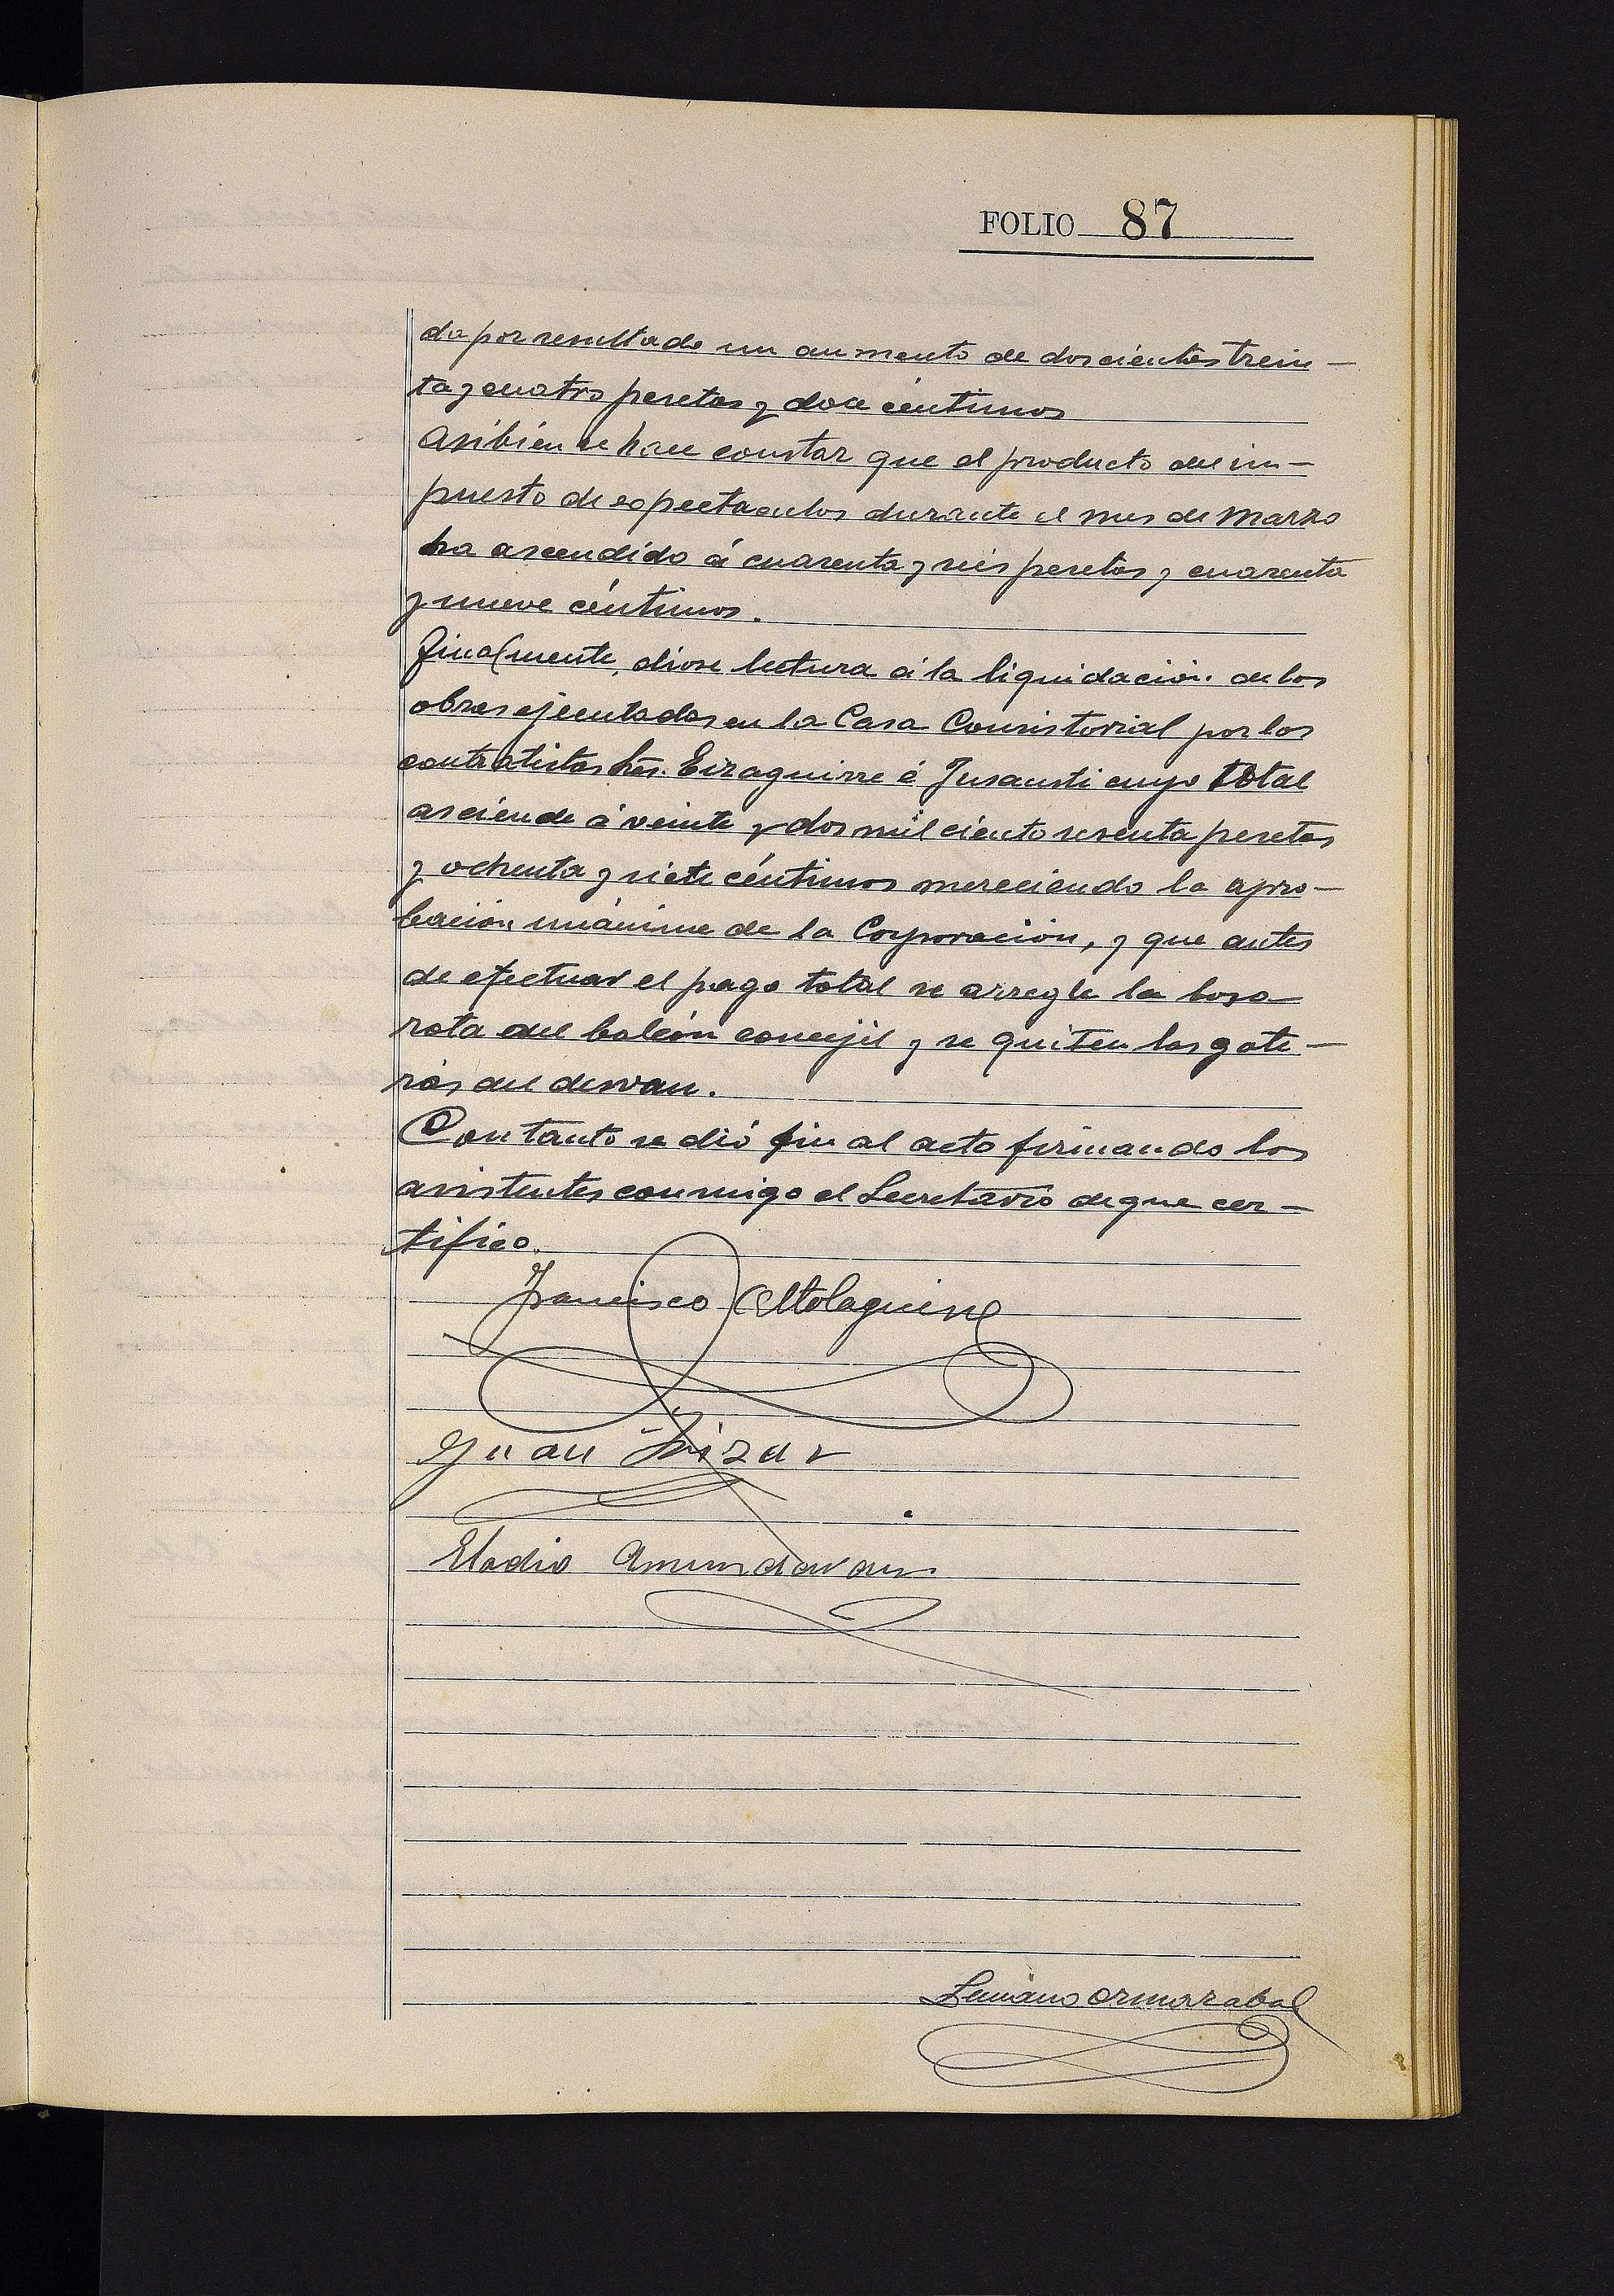 FOLIO 87
do por resultado un aumento de doscientas trein-
ta y cuatro pesetas y doce céntimos
Asibién se hace constar que el producto del im-
puesto de espectaculos durante el mes de Marzo
ha ascendido á cuarenta y seis pesetas y cuarenta
y nueve céntimos.
Finalmente, diose lectura á la liquidación de las
obras ejecutadas en la Casa Consistorial por los
contratistas Sres. Eizaguirre é Jusausti cuyo total
asciende á veinte y dos mil ciento sesenta pesetas
y ochenta y siete céntimos mereciendo la apro-
bación unánime de la Corporación, y que antes
de efectuar el pago total se arregle la losa
rota del balcón concejil y se quiten las gote-
ras del desvan.
Con tanto se dió fin al acto firmando los
asistentes conmigo el Secretario de que cer-
tifico.
Francisco Altolaguirre
Juan
Eladio Amundarain
Ormazabal